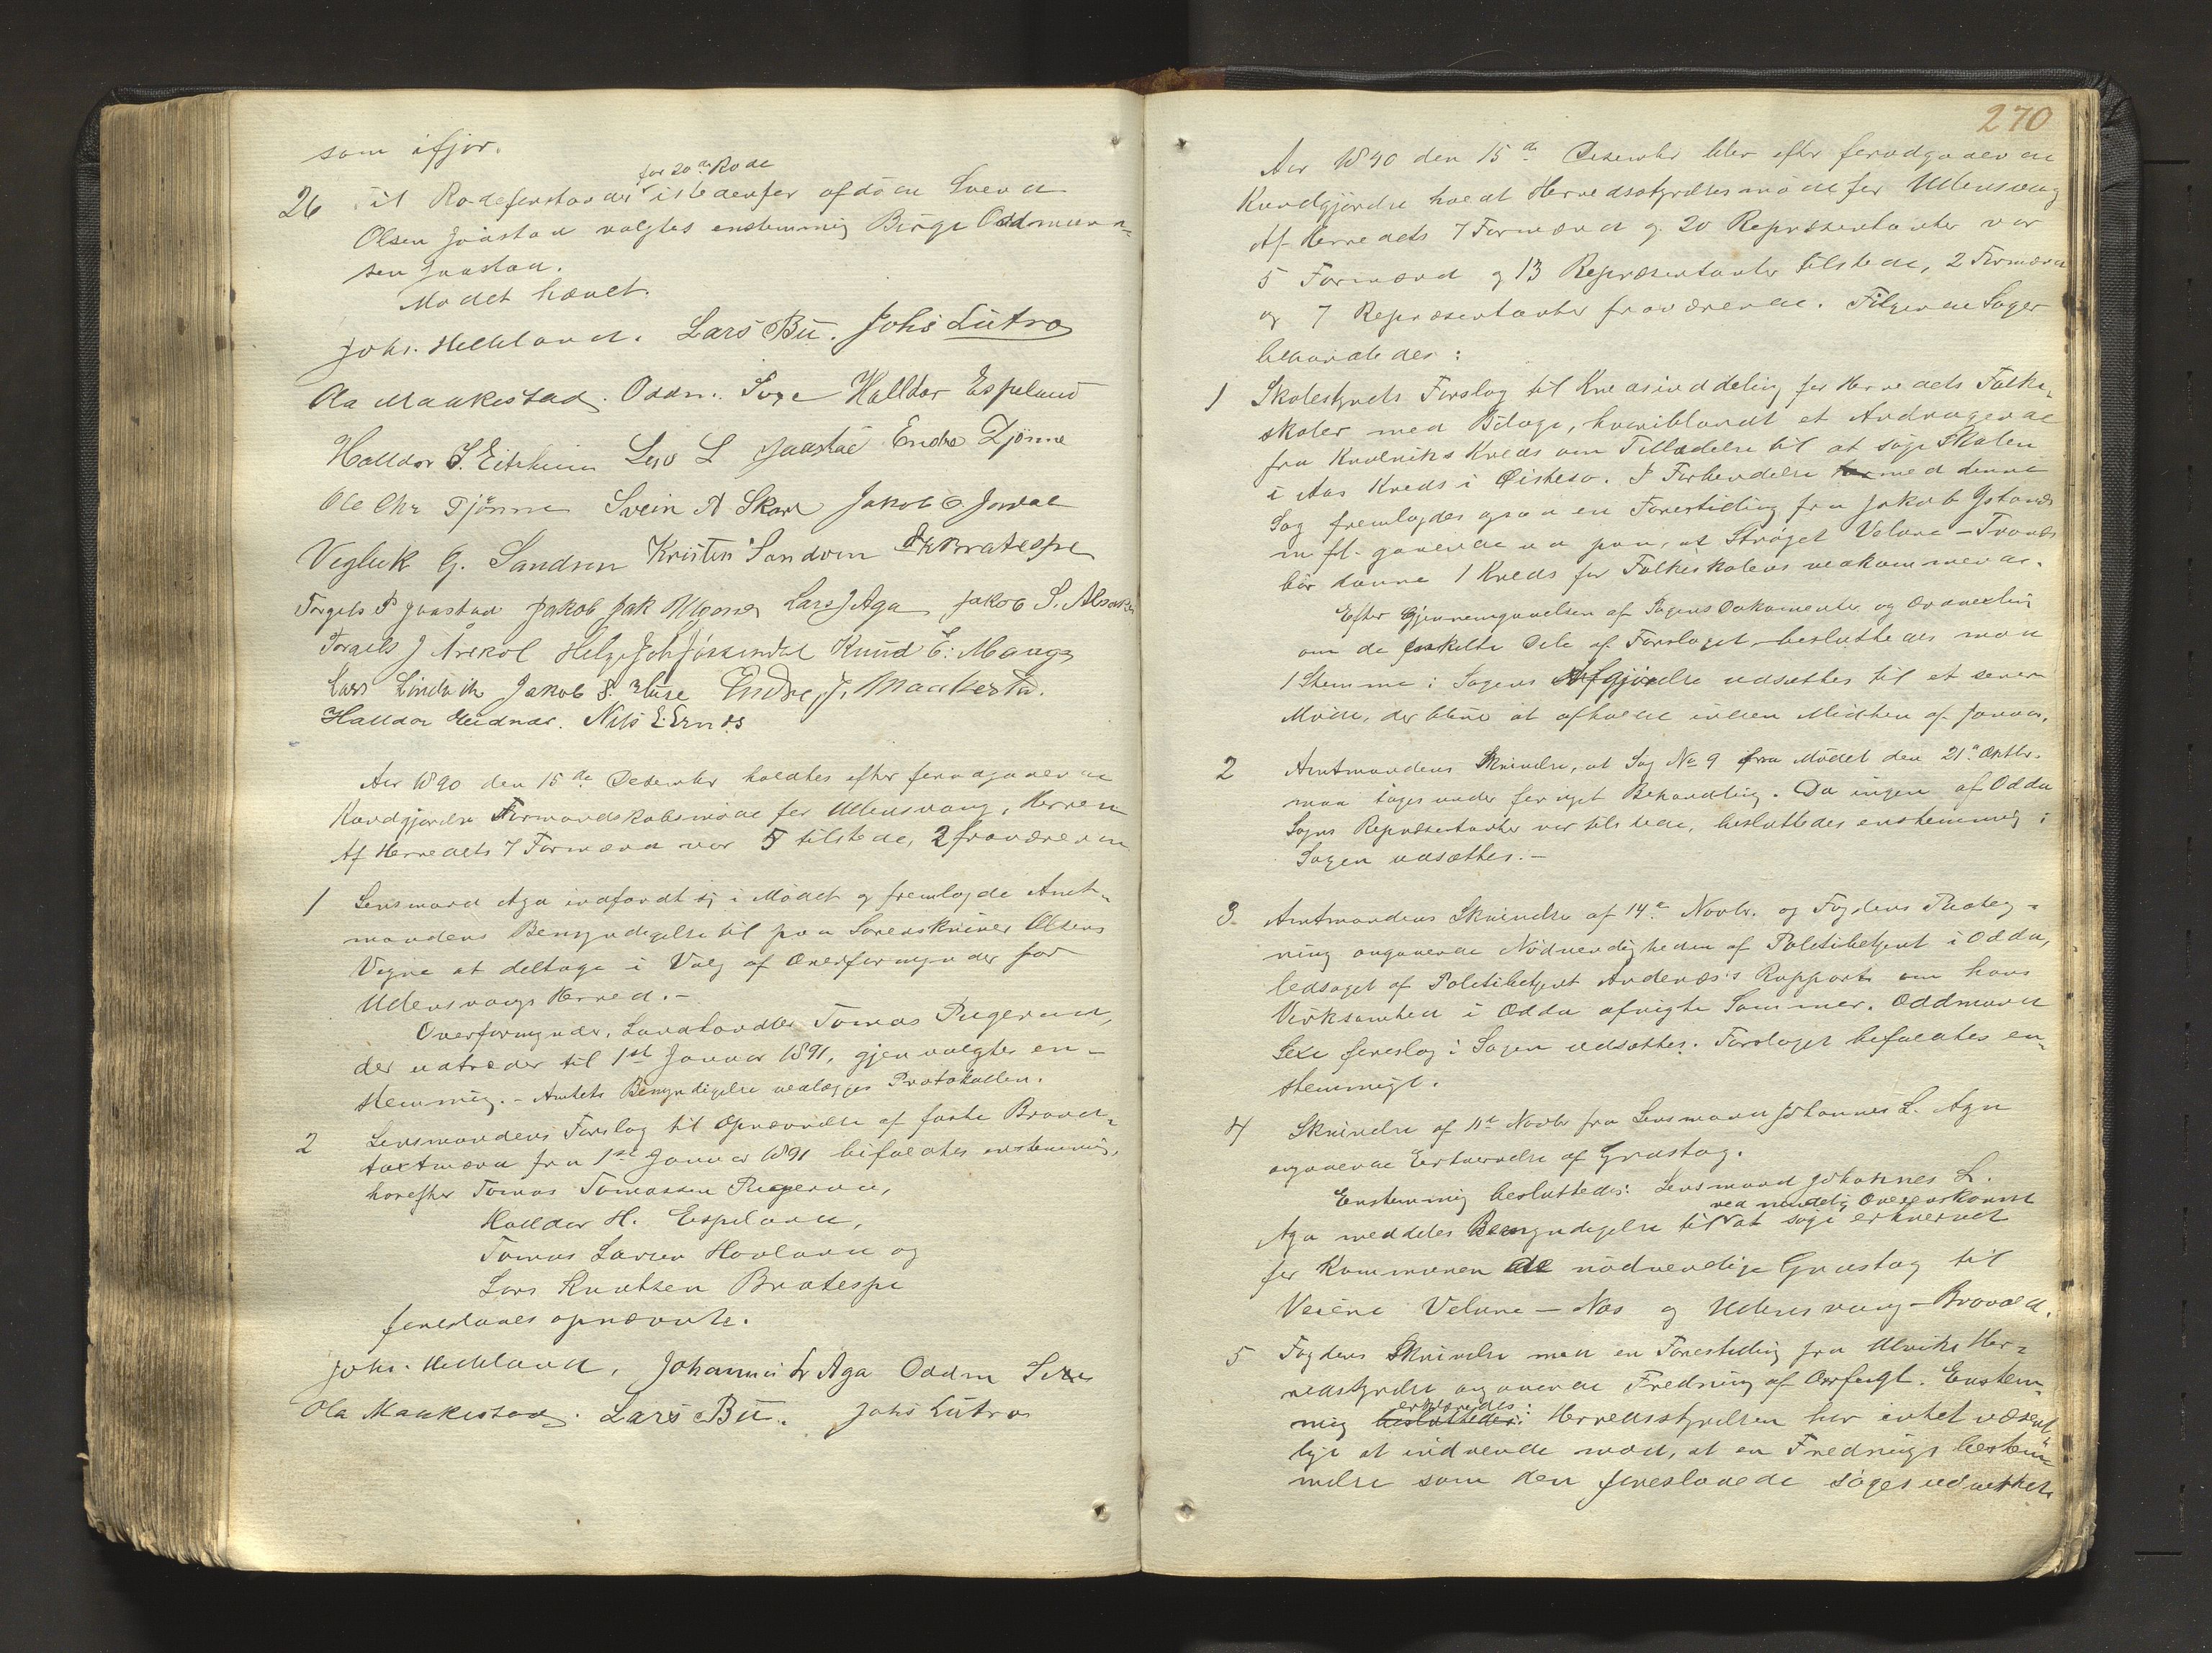 som ifjor.
26 Til Rodeforstander for 20de Rode istedenfor afdøde Svend
Olsen Jaastad valgtes enstemmig Børge Oddmund-
sen Jaastad.
Mødet hævet.
Johs. Helleland. Lars Bu. Johs Lutro
Ola Maakestad. Oddm. Sexe Halldor Espeland
Halldor S. Eitrheim L Jaastad Endre Tjønne
Ole Chr Tjønne Svein A Skare Jakob O. Jordal
Vegleik G. Sandven Kristen Sandven Bratespe
Torgils P Jaastad Jakob Jak Lars J Aga Jakob S.
Torgils J Årekol Helge Joh Jøssendal Knud E. Mauge
Lars Lindvik Jakob S. Huse Endre J. Maakestad.
Halldor Nils E. Ernes
Aar 1890 den 15de Desember holdtes efter forudgaaende
Kundgjørelse Formandskabsmøde for Ullensvang Herred
Af Herredets 7 Formænd var 5 tilstede, 2 fraværende
1 Lensmand Aga indfandt sig i Mødet og fremlagde Amt-
mandens Bemyndigelse til paa Sorenskriver Olsens
Vegne at deltage i Valg af Overformynder for
Ullensvangs Herred.-
Overformynder, Landhandler Tomas Pugerud,
der udtræder til 1st Januar 1891, gjenvalgtes en-
stemmig.- Amtets Bemyndigelse vedlægges Protokollen.
2 Lensmandens Forslag til Opnævnelse af faste Brand-
taxtmænd fra 1ste Januar 1891 bifaldtes enstemmig,
hvorefter Tomas Tomassen Pugerud,
Halldor H. Espeland,
Tomas Larsen Hovland og
Lars Knutsen Bratespe
foreslaaes opnævnte.
Johs. Helleland, Johannes L Aga Oddm Sexe
Ola Maakestad. Lars Bu. Johs Lutro
270
Aar 1890 den 15de Desember blev efter forudgaaende
Kundgjørelse holdt Herredsstyrelsesmøde for Ullensvang
Af Herredets 7 Formænd og 20 Repræsentanter var
5 Formænd og 13 Repræsentanter tilstede, 2 Formænd
og 7 Repræsentanter fraværende. Følgende Sager
behandledes:
1 Skolestyrets Forslag til Kredsinddeling for Herredets Folke-
skoler med Bilage, hvoriblandt et Andragende
fra Kvalviks Kreds om Tilladelse til at søge Skolen
i Aas Kreds i Øistesø. I Forbindelse med denne
Sag fremlagdes ogsaa en Forestilling fra Jakob Ystanes
m fl. gaaende ud paa, at Strøget Velure - Trones
bør danne 1 Kreds for Folkeskolens vedkommende.
Efter Gjennemgaaelsen af Sagens Dokumenter og Drøftelse
om de enkelte Dele af Forslaget besluttedes mod
1 Stemme: Sagens Afgjørelse udsættes til et senere
Møde, der bliver at afholde inden Midten af Januar.
2 Amtmandens Skrivelse, at Sag No 9 fra Mødet den 21de Oktbr.
maa tages under fornyet Behandling. Da ingen af Odda
Sogns Repræsentanter var tilstede, besluttedes enstemmig:
Sagen udsættes.-
3. Amtmandens Skrivelse af 14de Novbr. og Fogdens Paateg-
ning angaaende Nødvendigheden af Politibetjent i Odda,
ledsaget af Politibetjent Andenæs's Rapport om hans
Virksomhed i Odda afvigte Sommer. Oddmund
Sexe foreslog: Sagen udsættes. Forslaget bifaldtes en-
stemmigt.
4 Skrivelse af 11te Novbr fra Lensmand Johannes L. Aga
angaaende Erhvervelse af Grustag.
Enstemmig besluttedes: Lensmand Johannes L.
Aga meddeles Bemyndigelse til ved mindelig Overenskomst at søge erhvervet
for Kommunen de nødvendige Grustag til
Veiene Velure - Næs og Ullensvang - Bravold.
5 Fogdens Skrivelse med en Forestilling fra Ulviks Her-
redsstyrelse angaaende Fredning af Orfugl. Enstem-
mig besluttedes: erklæredes: Herredsstyrelsen har intet væsent-
ligt at indvende mod, at en Fredningsbestem-
melse som den foreslaaede søges udvirket